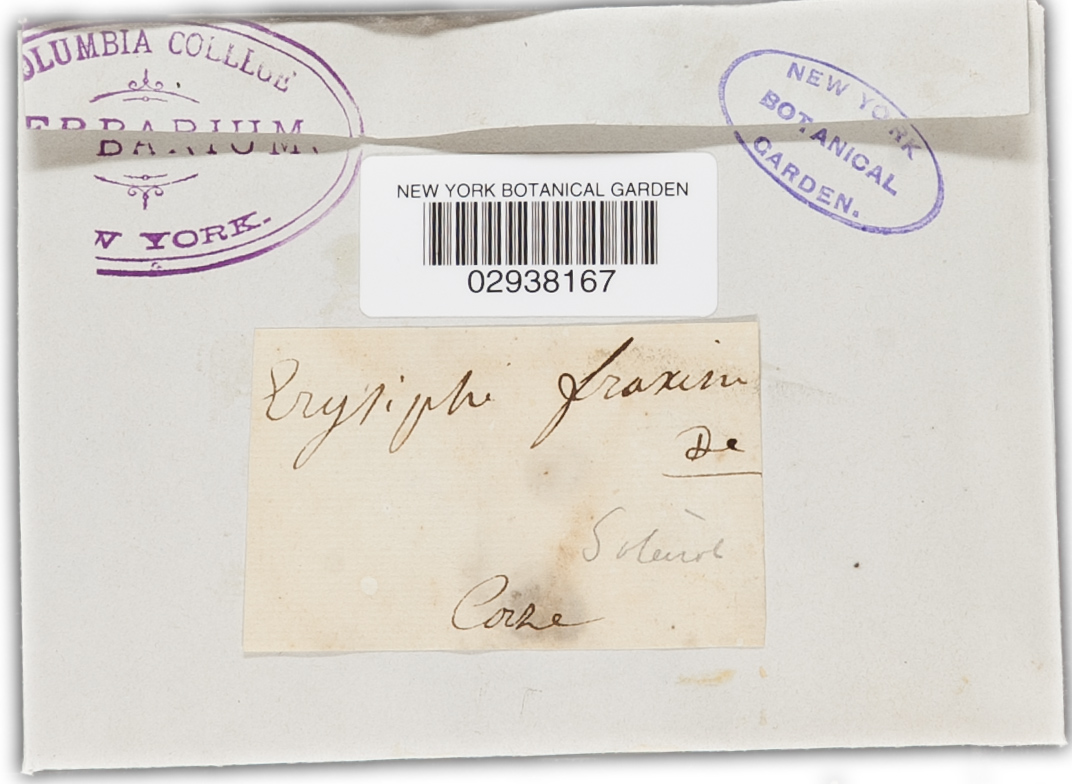 COLUMBIA COLLEGE
HERBARIUM.
W YORK.
NEW YORK
BOTANICAL
GARDEN.
NEW YORK BOTANICAL GARDEN
02938167
Erysiphe fraxini
De
Soleirol
Corse